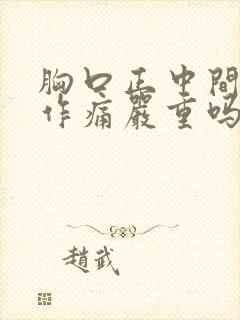 胸口正中間
作痛嚴重吗
趙武